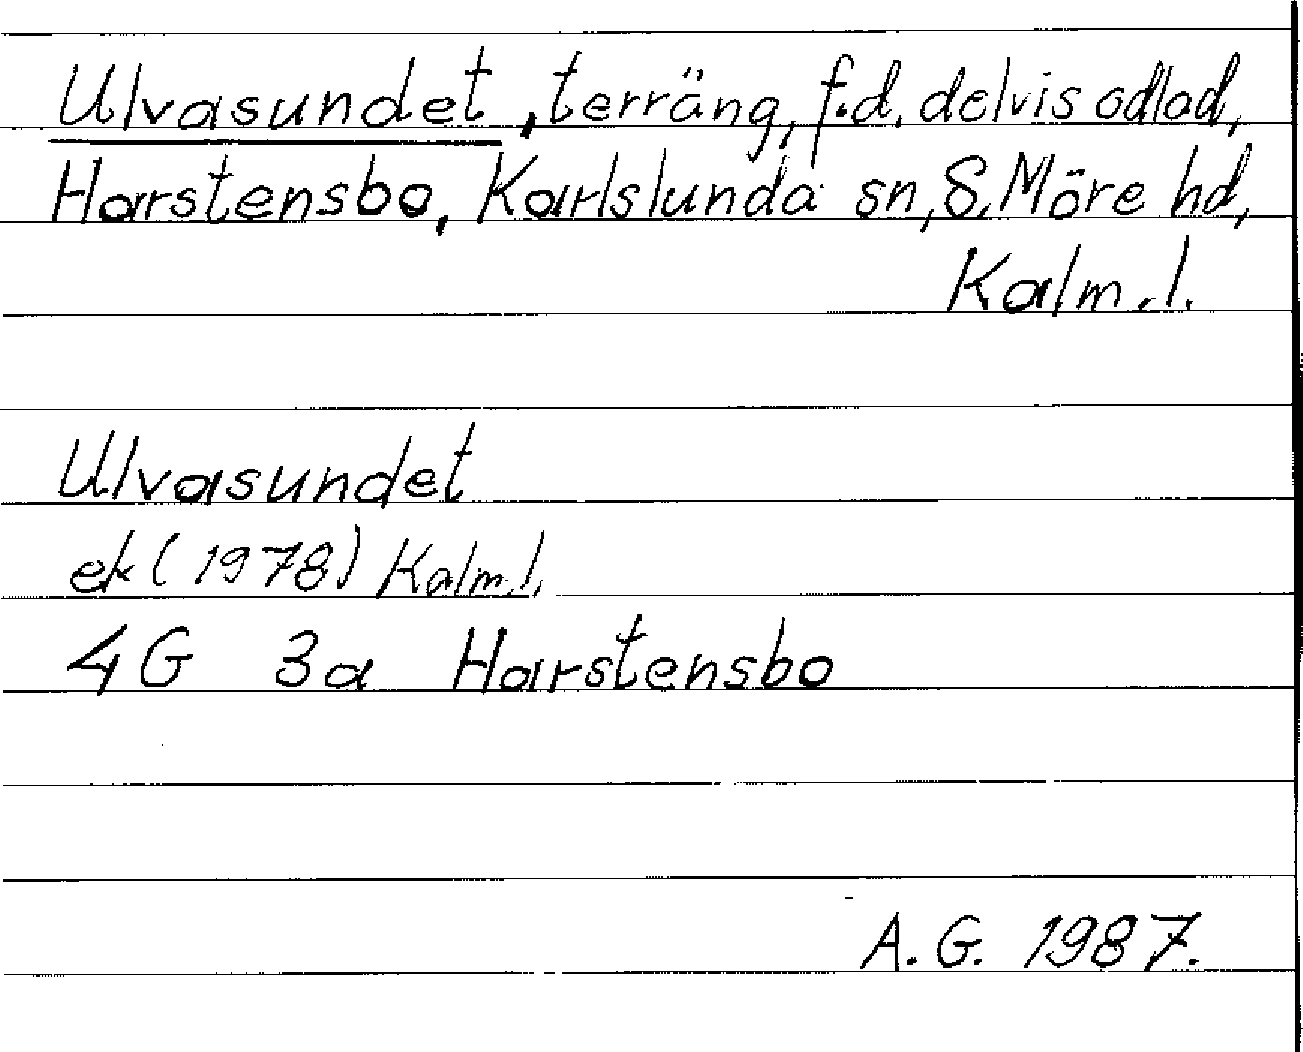 Ulvasundet, terräng, f.d. delvis odlad,
Harstensbo, Karlslunda sn, S. Möre hd,
Kalm. l.
Ulvasundet
ek (1978) Kalm. l.
4G 3a Harstensbo
A. G. 1987.